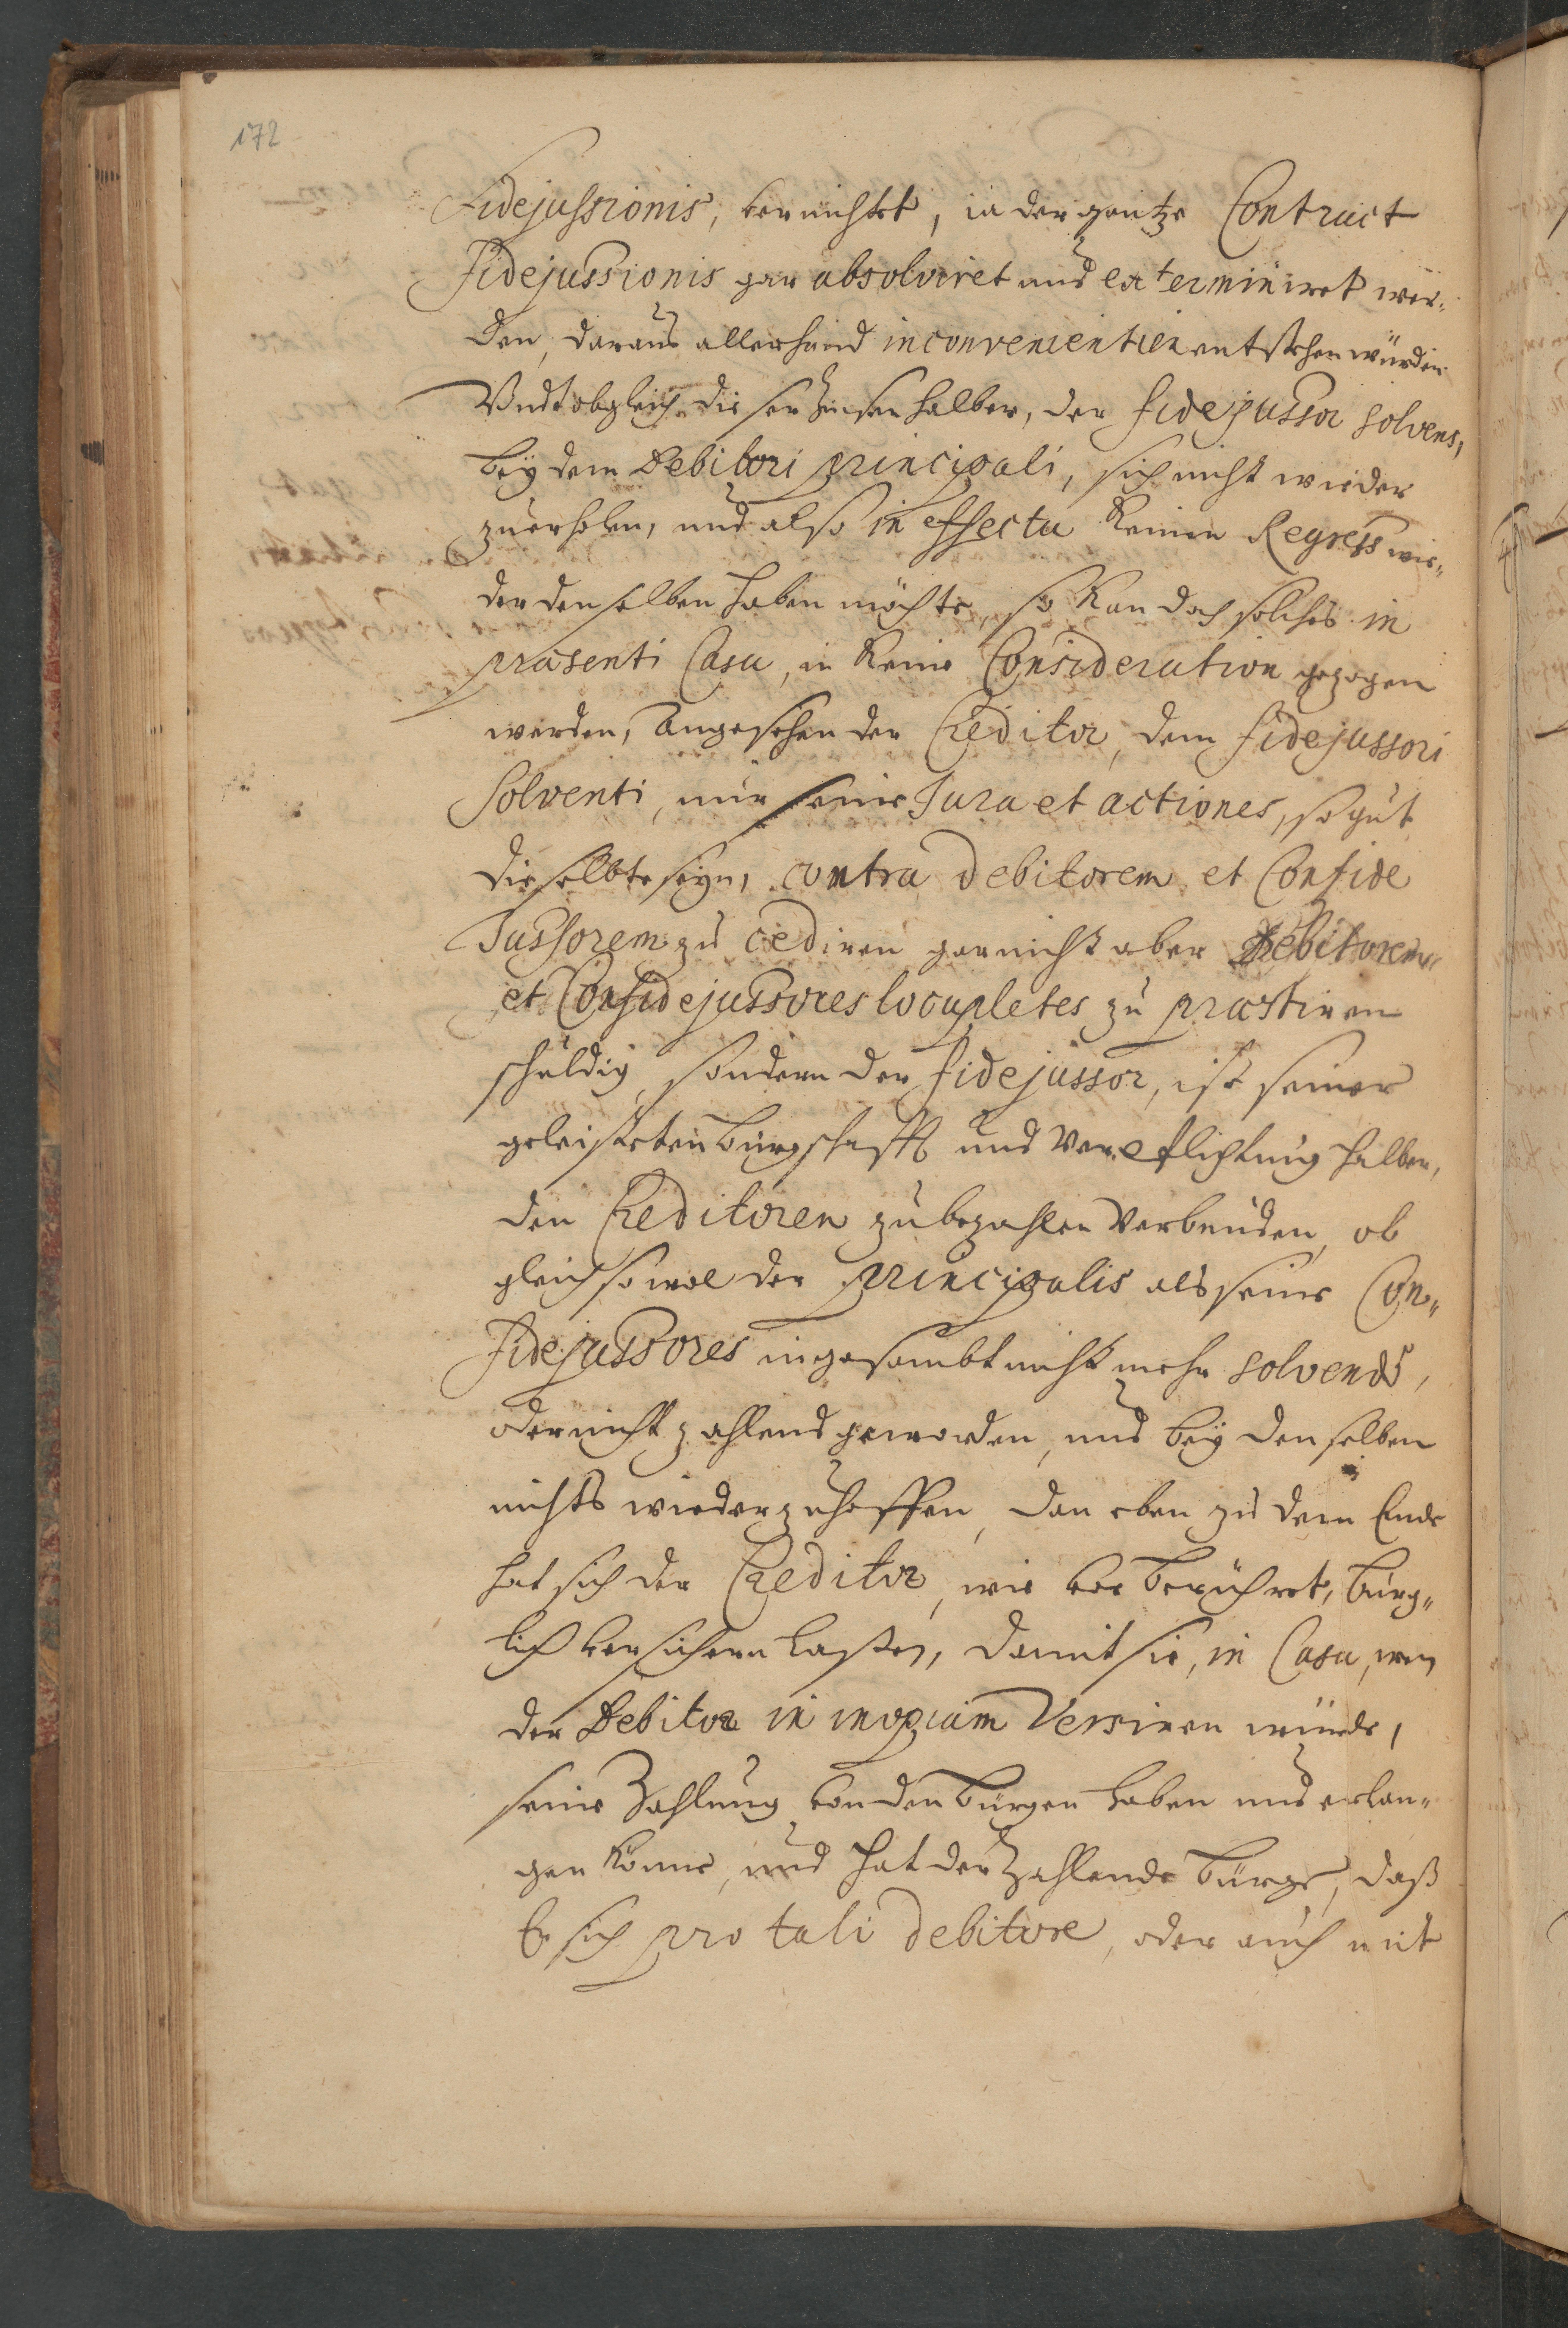 172
Fidejussionis, vernichtet, ja der gantze Contract
Fidejussionis gar absolviret und exterminiret wer„
den, daraus allerhand inconvenientien entstehen würden
Undt obgleich dieser Zinsen halber, der fidejussor solvens,
bey dem Debitori principali, sich nicht wieder
zuerholen, und also in effectu keinen Regress wie„
der denselben haben möchte, so kan doch solches in
præsenti Casu, in keine Consideration gezogen
werden, Angesehen der Creditor, dem fidejussori
Solventi, nur seine Jura et actiones, so gut
dieselbte seyn, contra debitorem et Confide
Jussorem zu cediren gar nicht aber Debitorem
et Confidejussores locupletes zu præstiren
schuldig, sondern der fidejussor, ist seiner
geleisteten bürgschafft und Verpflichtung halber,
den Creditoren zu bezahlen verbunden, ob
gleich sowol der principalis als seine Con„
Fidejussores ingesambt nicht mehr solvendo,
oder nicht zahlend geworden, und bey denselben
nichts wieder zuhoffen, dan eben zu dem Ende
hat sich der Creditor, wie vor berühret, bürg„
lich versichern laßen, damit sie, in Casu, wen
der Debitor in inopiam Versiren würde,
seine Zahlung von den bürgen haben und erlan„
gen könne, und hat der Zahlende bürge, daß
Er sich pro tali debitore, oder auch mit